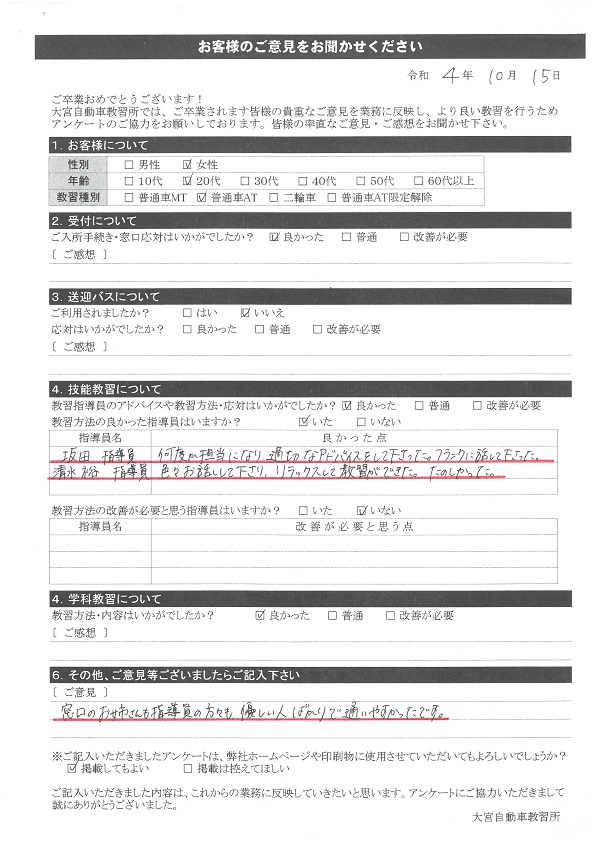 お客様のご意見をお聞かせください
令和 4年 10月 15日
ご卒業おめでとうございます！
大宮自動車教習所では、ご卒業されます皆様の貴重なご意見を業務に反映し、より良い教習を行うため
アンケートのご協力をお願いしております。皆様の率直なご意見・ご感想をお聞かせ下さい。
1. お客様について
性別 □ 男性 ☑ 女性
年齢 □ 10代 ☑ 20代 □ 30代 □ 40代 □ 50代 □ 60代以上
教習種別 □ 普通車MT ☑ 普通車AT □ 二輪車 □ 普通車AT限定解除
2. 受付について
ご入所手続き・窓口応対はいかがでしたか？ ☑ 良かった □ 普通 □ 改善が必要
［ ご感想 ］
3. 送迎バスについて
ご利用されましたか？ □ はい ☑ いいえ
応対はいかがでしたか？ □ 良かった □ 普通 □ 改善が必要
［ ご感想 ］
4. 技能教習について
教習指導員のアドバイスや教習方法・応対はいかがでしたか？ ☑ 良かった □ 普通 □ 改善が必要
教習方法の良かった指導員はいますか？ ☑ いた □ いない
指導員名 良かった点
坂田 指導員 何度か担当になり適切なアドバイスをして下さった。フランクに話して下さった。
清水裕 指導員 色々お話しして下さり、リラックスして教習ができた。たのしかった。
教習方法の改善が必要と思う指導員はいますか？ □ いた ☑ いない
指導員名 改善が必要と思う点
4. 学科教習について
教習方法・内容はいかがでしたか？ ☑ 良かった □ 普通 □ 改善が必要
［ ご感想 ］
6. その他、ご意見等ございましたらご記入下さい
［ ご意見 ］
窓口のお姉さんも指導員の方々も、優しい人ばかりで通いやすかったです。
※ご記入いただきましたアンケートは、弊社ホームページや印刷物に使用させていただいてもよろしいでしょうか？
☑ 掲載してもよい □ 掲載は控えてほしい
ご記入いただきました内容は、これからの業務に反映していきたいと思います。アンケートにご協力いただきまして
誠にありがとうございました。
大宮自動車教習所